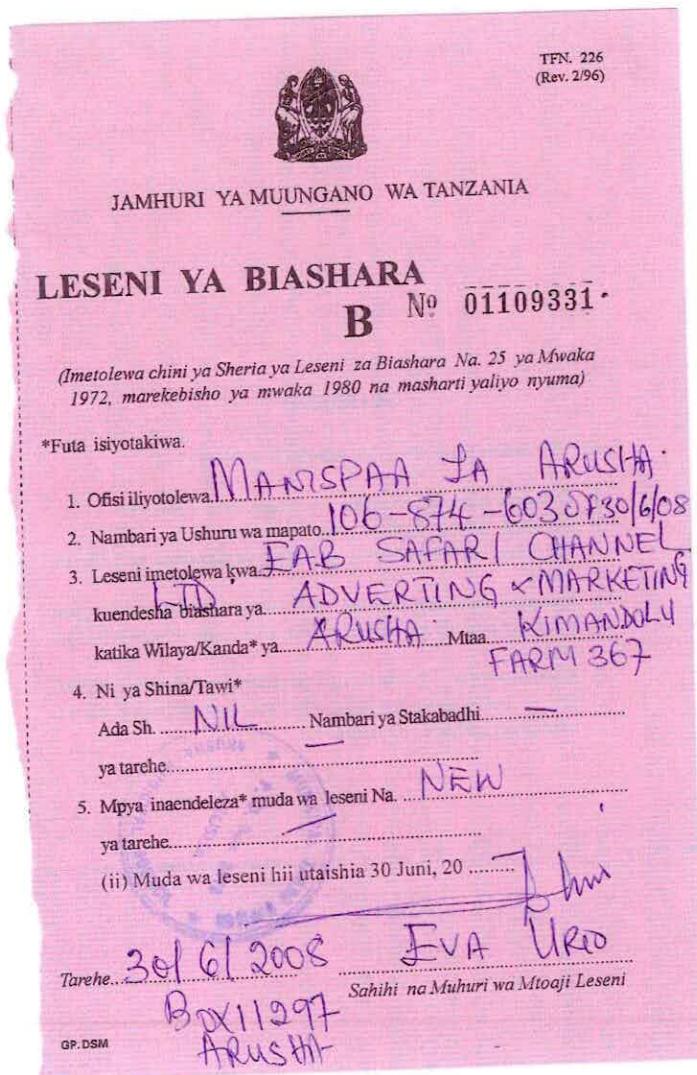 TFN. 226
(Rev. 2/96)
JAMHURI YA MUUNGANO WA TANZANIA
LESENI YA BIASHARA
B Nº 01109331
(Imetolewa chini ya Sheria ya Leseni za Biashara Na. 25 ya Mwaka
1972, marekebisho ya mwaka 1980 na masharti yaliyo nyuma)
*Futa isiyotakiwa.
1. Ofisi iliyotolewa MANISPAA YA ARUSHA
2. Nambari ya Ushuru wa mapato 106-874-603 OF 30/6/08
3. Leseni imetolewa kwa EAB SAFARI CHANNEL
LTD
kuendesha biashara ya ADVERTING & MARKETING
katika Wilaya/Kanda* ya ARUSHA Mtaa KIMANDOLU
FARM 367
4. Ni ya Shina/Tawi*
Ada Sh. NIL Nambari ya Stakabadhi —
ya tarehe —
5. Mpya inaendeleza* muda wa leseni Na. NEW
ya tarehe —
(ii) Muda wa leseni hii utaishia 30 Juni, 20
Tarehe 30/6/2008 EVA URIO
Sahihi na Muhuri wa Mtoaji Leseni
BOX 11297
ARUSHA
GP. DSM